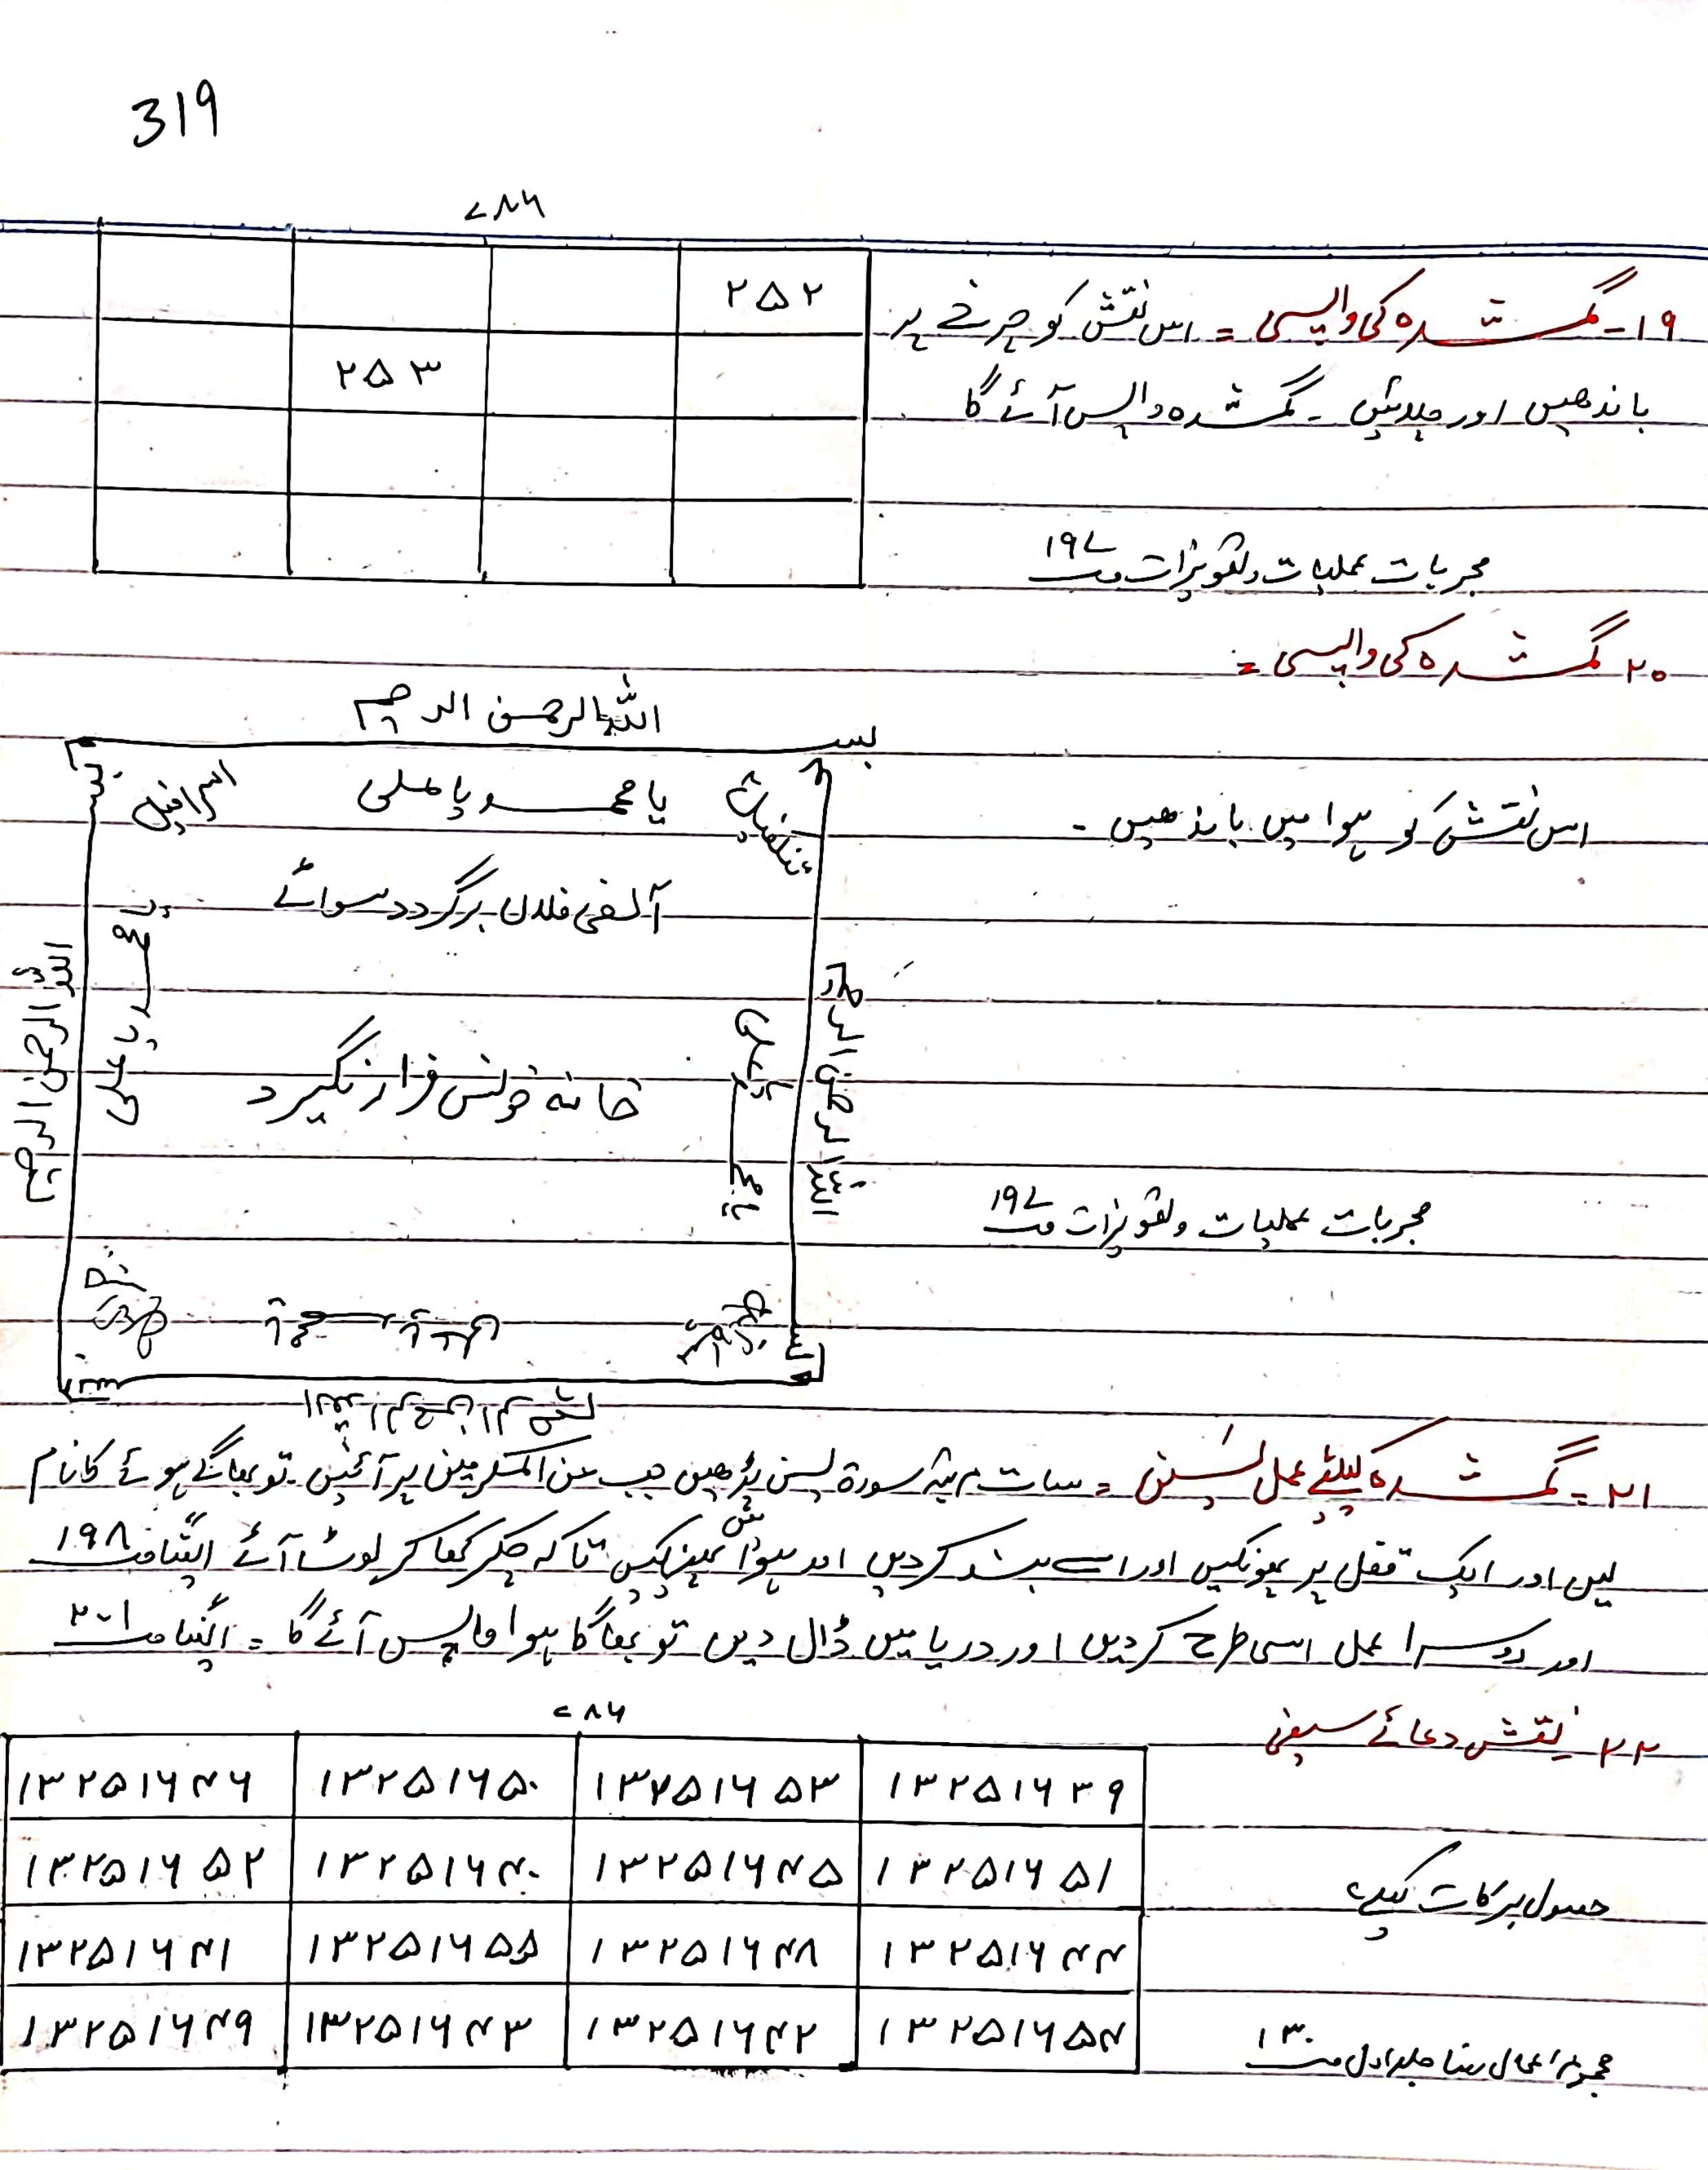 319
۷۸۶
۱۹۔ گمشدہ کی واپسی = اس نقش کو چرخے پر
باندھیں اور چلائیں ۔ گمشدہ واپس آئے گا
۲۵۲
۲۵۳
مجربات عملیات و تعویذات ص ۱۹۷
۲۰ گمشدہ کی واپسی =
اس نقش کو ہوا میں باندھیں ۔
بسم اللہ الرحمن الرحیم
یا محمد یا علی
اسرافیل
فلاں برگردد سوائے
خانہ خویش قرار نگیرد
بسم اللہ الرحمن الرحیم
یا محمد یا علی
بسم اللہ الرحمن الرحیم
یا محمد یا علی
مجربات عملیات و تعویذات ص ۱۹۷
۲۱ ۔ گمشدہ کیلئے عمل یٰسین = سات مرتبہ سورۃ یٰسین پڑھیں جب من المکرمین پر آئیں ۔ تو بھاگے ہوئے کا نام
لیں اور ایک قفل پر پھونکیں اور اسے بند کر دیں اور ہوا میں پھینکیں تاکہ چکر کھا کر لوٹ آئے ایضاً ص ۱۹۸
اور دوسرا عمل اسی طرح کر دیں اور دریا میں ڈال دیں تو بھاگا ہوا واپس آئے گا = ایضاً ص ۲۰۱
۲۲ نقش دعائے سیفی
۷۸۶
۱۳۲۵۱۶۳۹ ۱۳۲۵۱۶۵۳ ۱۳۲۵۱۶۵۰ ۱۳۲۵۱۶۴۶
۱۳۲۵۱۶۵۱ ۱۳۲۵۱۶۴۵ ۱۳۲۵۱۶۴۰ ۱۳۲۵۱۶۵۲
حصول برکات کیلئے
۱۳۲۵۱۶۴۴ ۱۳۲۵۱۶۴۸ ۱۳۲۵۱۶۵۵ ۱۳۲۵۱۶۴۱
۱۳۲۵۱۶۵۴ ۱۳۲۵۱۶۴۲ ۱۳۲۵۱۶۴۳ ۱۳۲۵۱۶۴۹
مجموعہ اعمال رضا جلد اول ص ۱۳۰